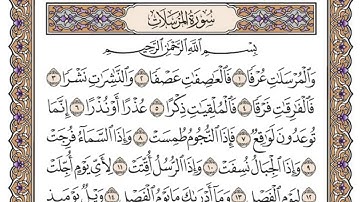 سُورَةُ المُرْسَلَاتِ
بِسْمِ اللَّهِ الرَّحْمَٰنِ الرَّحِيمِ
وَالْمُرْسَلَاتِ عُرْفًا ١ فَالْعَاصِفَاتِ عَصْفًا ٢ وَالنَّاشِرَاتِ نَشْرًا ٣
فَالْفَارِقَاتِ فَرْقًا ٤ فَالْمُلْقِيَاتِ ذِكْرًا ٥ عُذْرًا أَوْ نُذْرًا ٦ إِنَّمَا
تُوعَدُونَ لَوَاقِعٌ ٧ فَإِذَا النُّجُومُ طُمِسَتْ ٨ وَإِذَا السَّمَاءُ فُرِجَتْ
٩ وَإِذَا الْجِبَالُ نُسِفَتْ ١٠ وَإِذَا الرُّسُلُ أُقِّتَتْ ١١ لِأَيِّ يَوْمٍ أُجِّلَتْ
١٢ لِيَوْمِ الْفَصْلِ ١٣ وَمَا أَدْرَاكَ مَا يَوْمُ الْفَصْلِ ١٤ وَيْلٌ يَوْمَئِذٍ